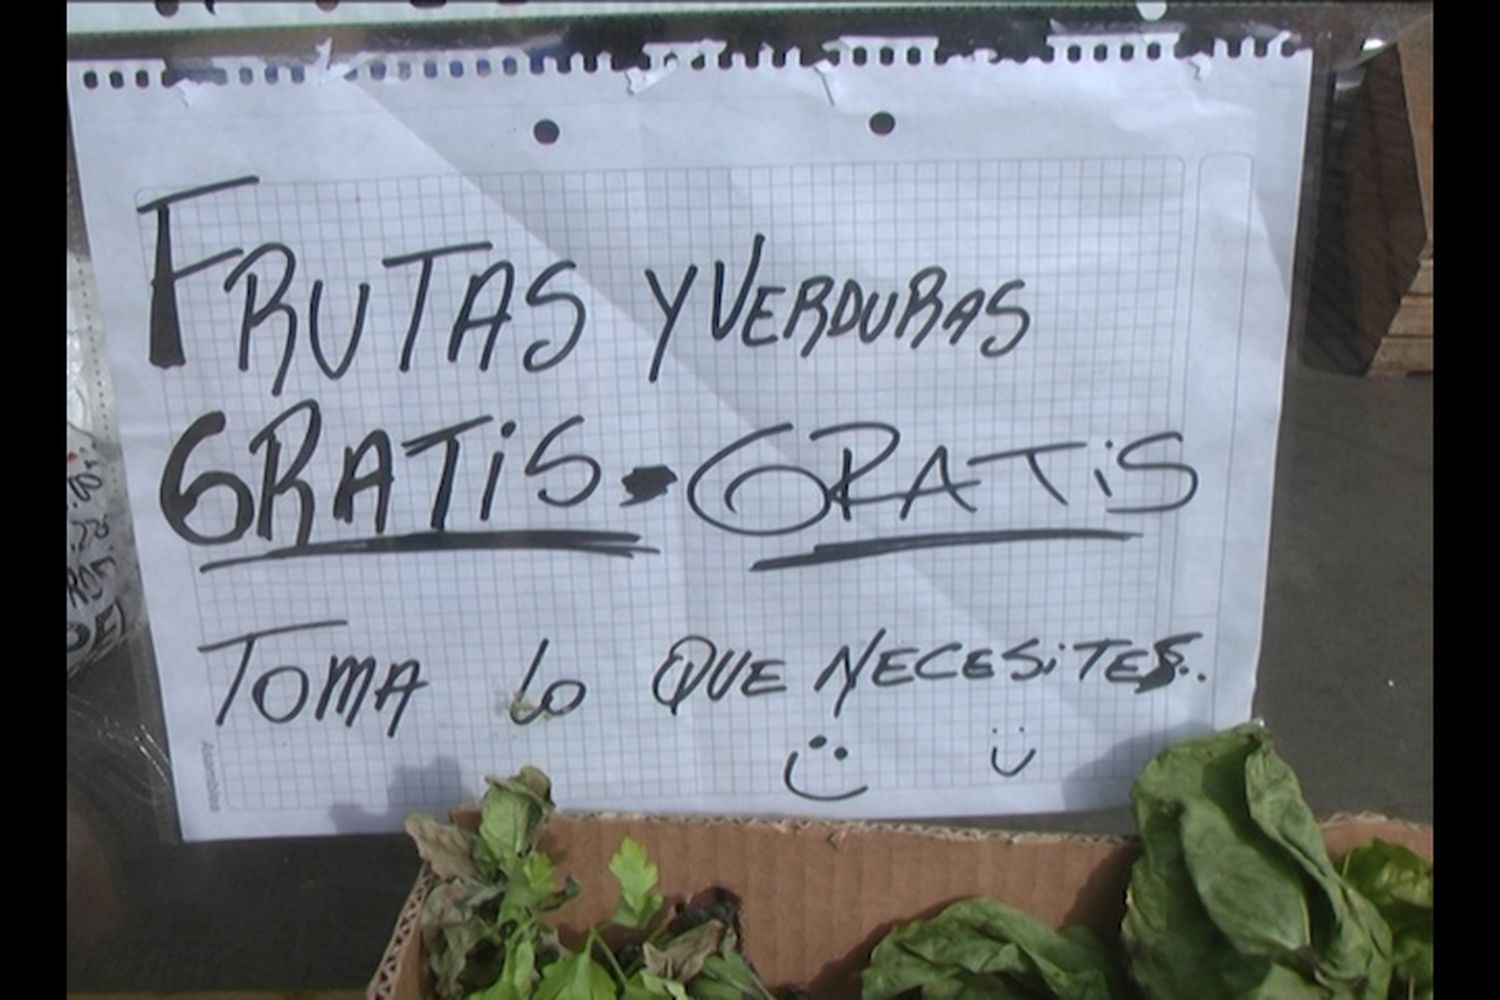 FRUTAS Y VERDURAS
GRATiS - GRATiS
TOMA lo QUE NECESiTES..